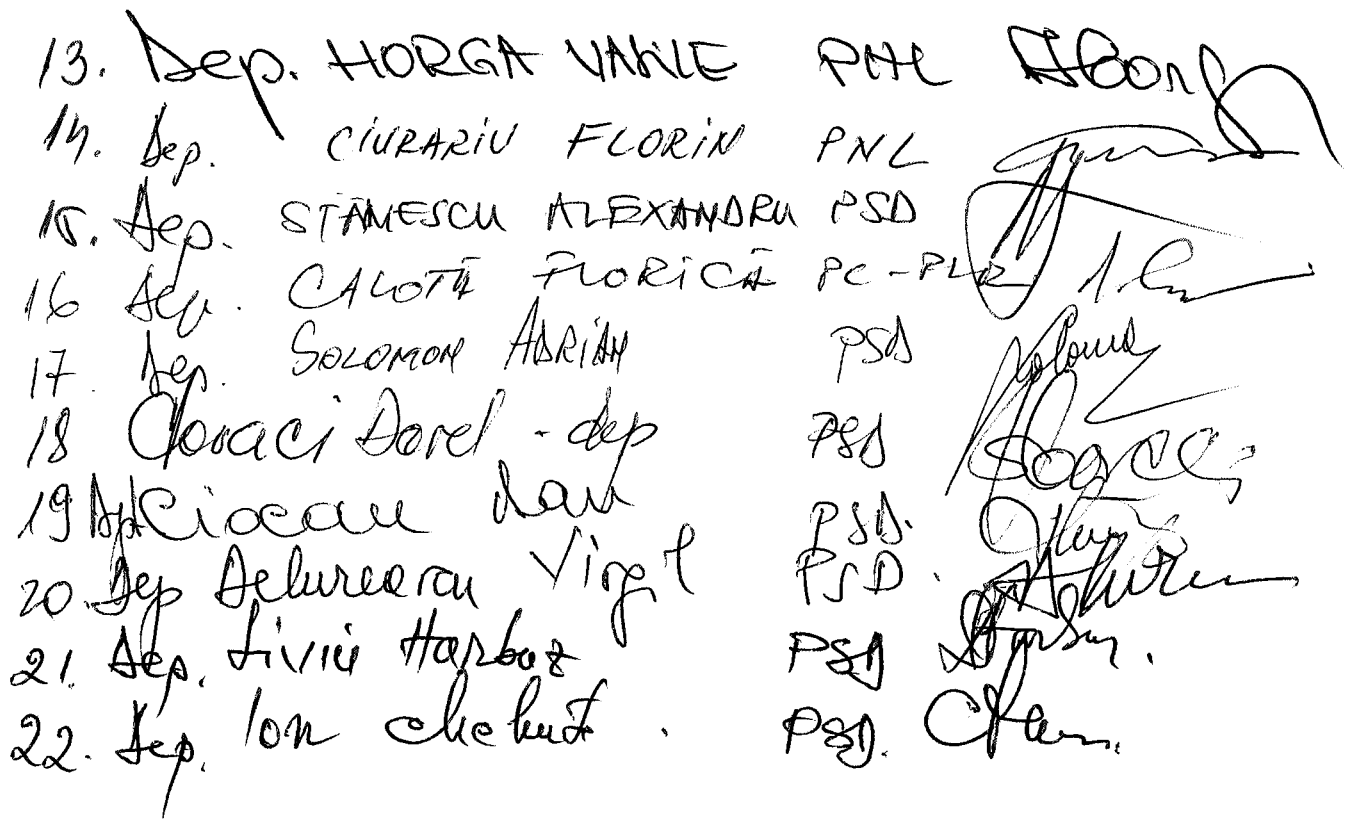 13. Dep. HORGA VASILE PNL
14. Dep. CIURARIU FLORIN PNL
15. Dep. STĂNESCU ALEXANDRU PSD
16 Dep. CALOTĂ FLORICĂ PC-PLR
17. Dep. SOLOMON ADRIAN PSD
18 Coraci Dorel - dep PSD
19 Dep Ciocan Dan PSD.
20. Dep Delureanu Virgil PSD.
21. Dep. Liviu Harbuz PSD
22. Dep. Ion Chelu PSD.